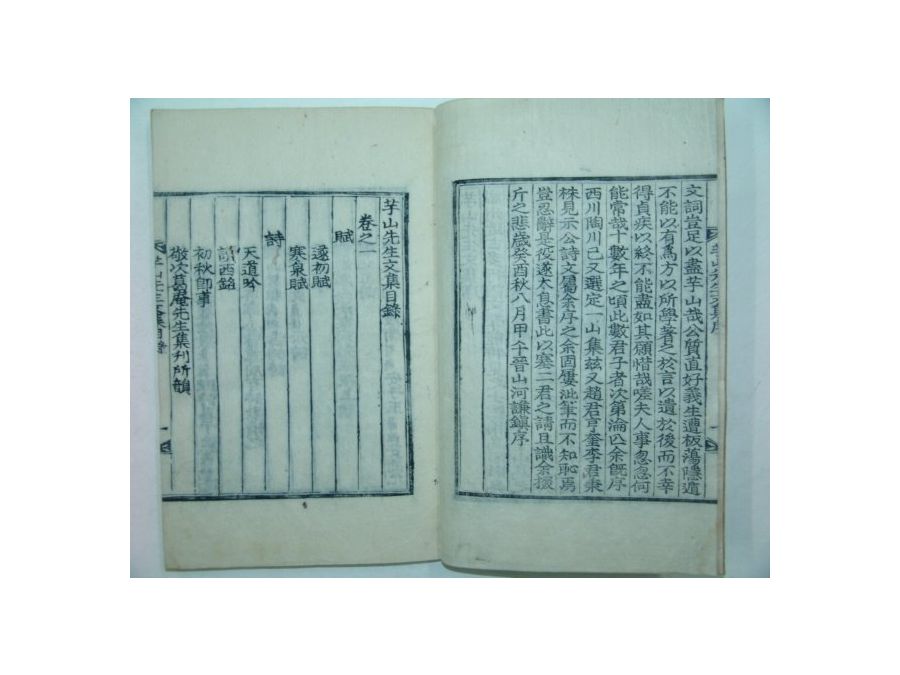 文詞豈足以盡芋山哉公質直好義生遭板蕩隱遁
不能以有爲方以所學著之於言以遺於後而不幸
得貞疾以終不能盡如其願惜哉嗟夫人事忽忽何
能常哉十數年之頃此數君子者次第淪亡余旣序
西川陶川已又選定一山集玆又趙君亨奎李君秉
株見示公詩文屬余序之余固屢泚筆而不知恥焉
豈忍辭是役遂太息書此以塞二君之請且識余掇
斤之悲歲癸酉秋八月甲午晉山河謙鎭序
芋山先生文集目錄
卷之一
賦
遂初賦
寒泉賦
詩
天道吟
讀西銘
初秋卽事
敬次葛庵先生集刊所韻
芋山先生文集目錄 一